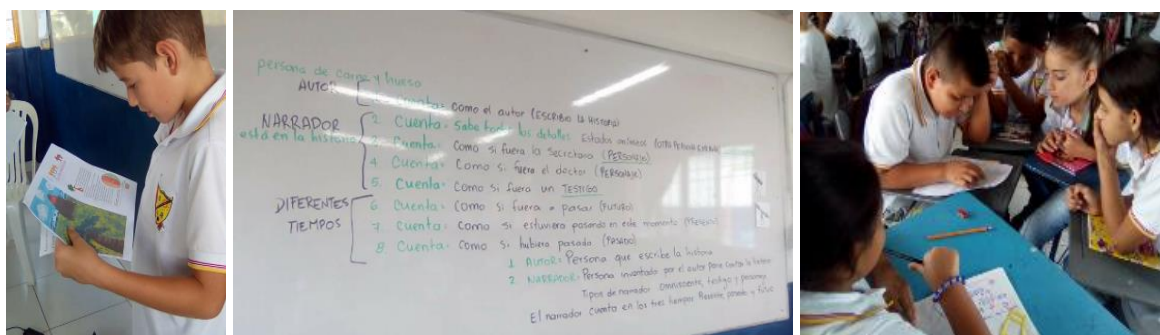 persona de carne y hueso
AUTOR
1. Cuenta: como el autor (ESCRIBIO LA HISTORIA)
NARRADOR
está en la historia
2. Cuenta: Sabe todos los detalles. Estados
3. Cuenta: Como si fuera la secretaria (PERSONAJE)
4 Cuenta: Como si fuera el doctor (PERSONAJE)
5. Cuenta: Como si fuera un TESTIGO
DIFERENTES
TIEMPOS
6 Cuenta: Como si fuera a pasar (FUTURO)
7 Cuenta: como si estuviera pasando en este momento (PRESENTE)
8 Cuenta: como si hubiera pasado (PASADO)
1 AUTOR: Persona que escribe la historia
2 NARRADOR: Persona inventada por el autor para contar la historia
Tipos de narrador omnisciente, testigo y personaje
El narrador cuenta en los tres tiempos Presente, pasado y futuro